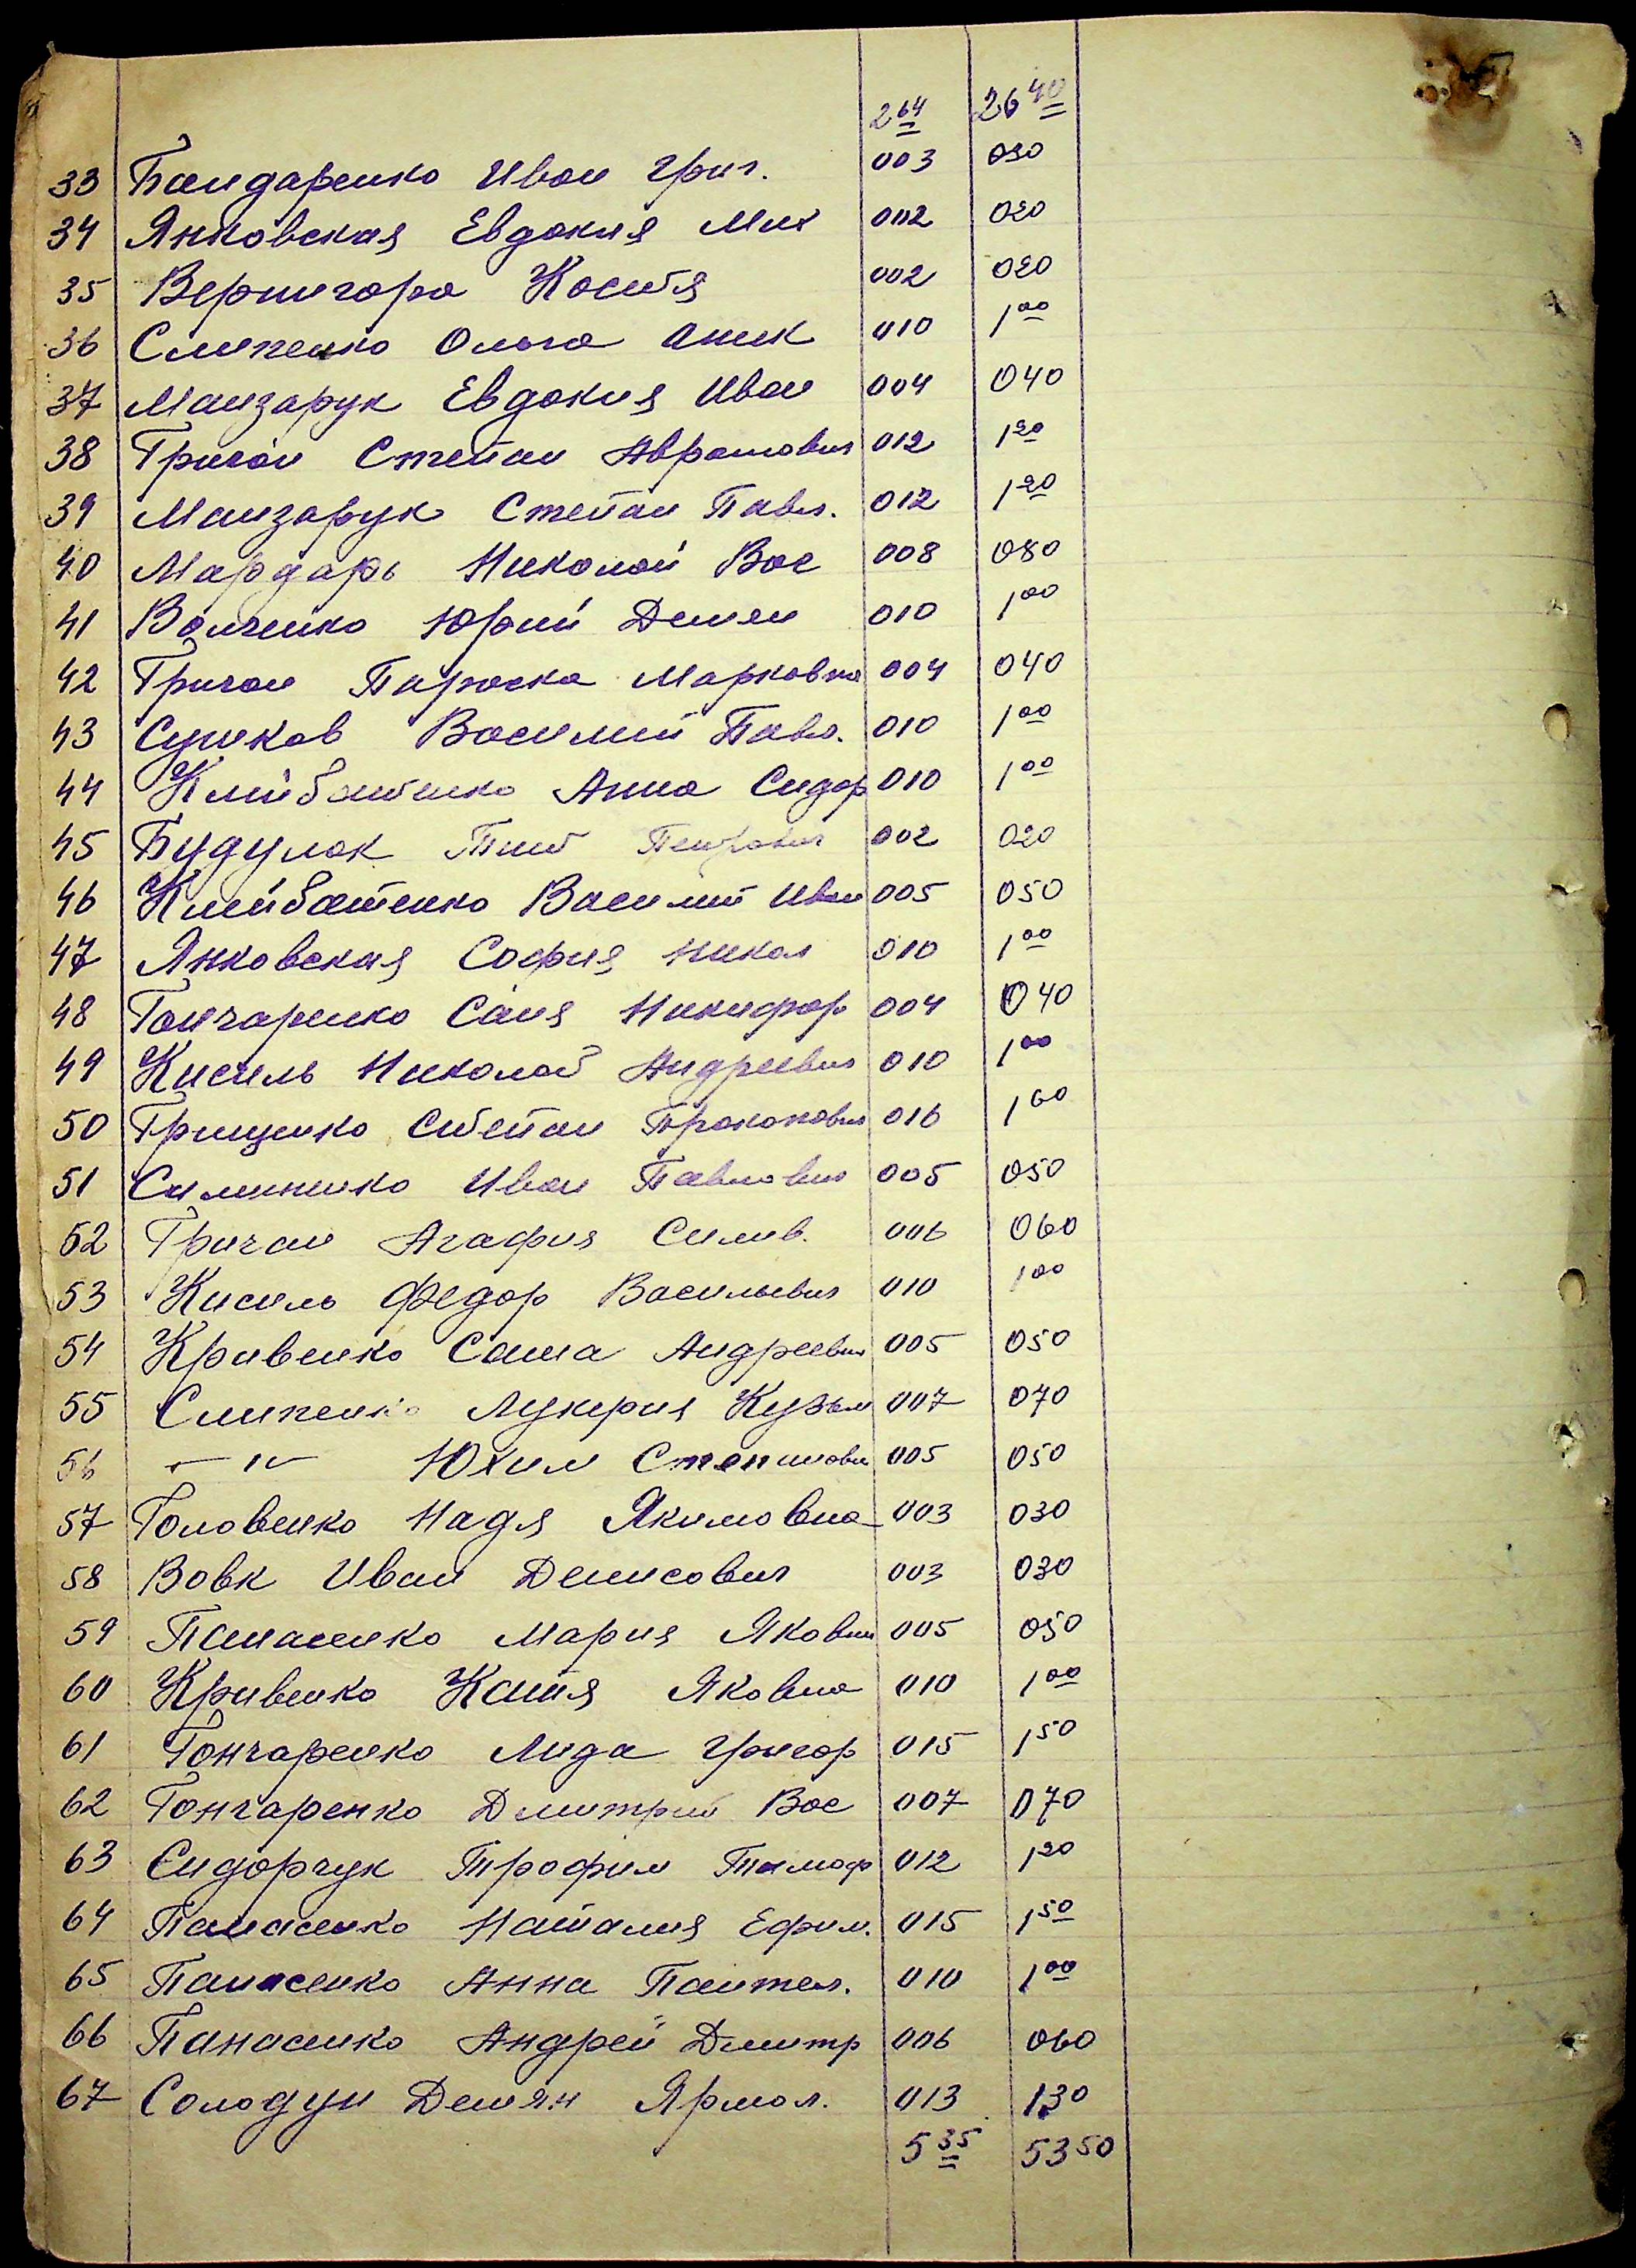 2 64 26 40
33 Бандаренко Иван Григ. 003 030
34 Янковская Евдокия Мих 002 020
35 Вернигора Костя 002 020
36 Слипенко Ольга Оник 010 1 00
37 Манзарук Евдокия Иван 004 040
38 Григан Степан Аврамович 012 1 20
39 Манзарук Степан Павл. 012 1 20
40 Мардарь Николай Вас 008 080
41 Волченко Юрий Демян 010 1 00
42 Григан Пароска Марковна 004 040
43 Сушков Василий Павл. 010 1 00
44 Клибатенко Анна Сидор 010 1 00
45 Будулак Тит Петрович 002 020
46 Клибатенко Василий Иван 005 050
47 Янковская София Никол 010 1 00
48 Гончаренко Саня Никифор 004 040
49 Кисиль Николай Андреевич 010 1 00
50 Грищенко Степан Прокопович 016 1 60
51 Симинико Иван Павлович 005 050
52 Григан Агафия Силив. 006 060
53 Кисиль Федор Васильевич 010 1 00
54 Кривенко Саша Андреевич 005 050
55 Слипенко Лукерия Кузьм 007 070
56 — " — Юхим Степанович 005 050
57 Головенко Надя Якимовна 003 030
58 Вовк Иван Денисович 003 030
59 Панасенко Мария Яковн 005 050
60 Кривенко Катя Яковна 010 1 00
61 Гончаренко Лида Григор 015 1 50
62 Гончаренко Дмитрий Вас 007 070
63 Сидорчук Трофим Тимоф 012 1 20
64 Панасенко Наталия Ефим. 015 1 50
65 Панасенко Анна Пантел. 010 1 00
66 Панасенко Андрей Дмитр 006 060
67 Солодун Демян Ярмол. 013 130
5 35 53 50